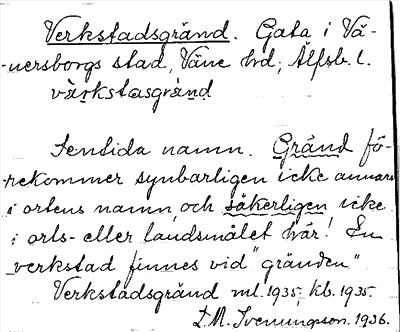 Verkstadsgränd. Gata i Vä-
nersborgs stad, Väne hd, Älfsb. l.
värkstasgränd
Sentida namn. Gränd fö-
rekommer synbarligen icke annars
i ortens namn, och säkerligen icke
i orts- eller landsmålet här! En
verkstad finnes vid "gränden"
Verkstadsgränd ml. 1935, kb. 1935.
D.M. Svenungson. 1936.